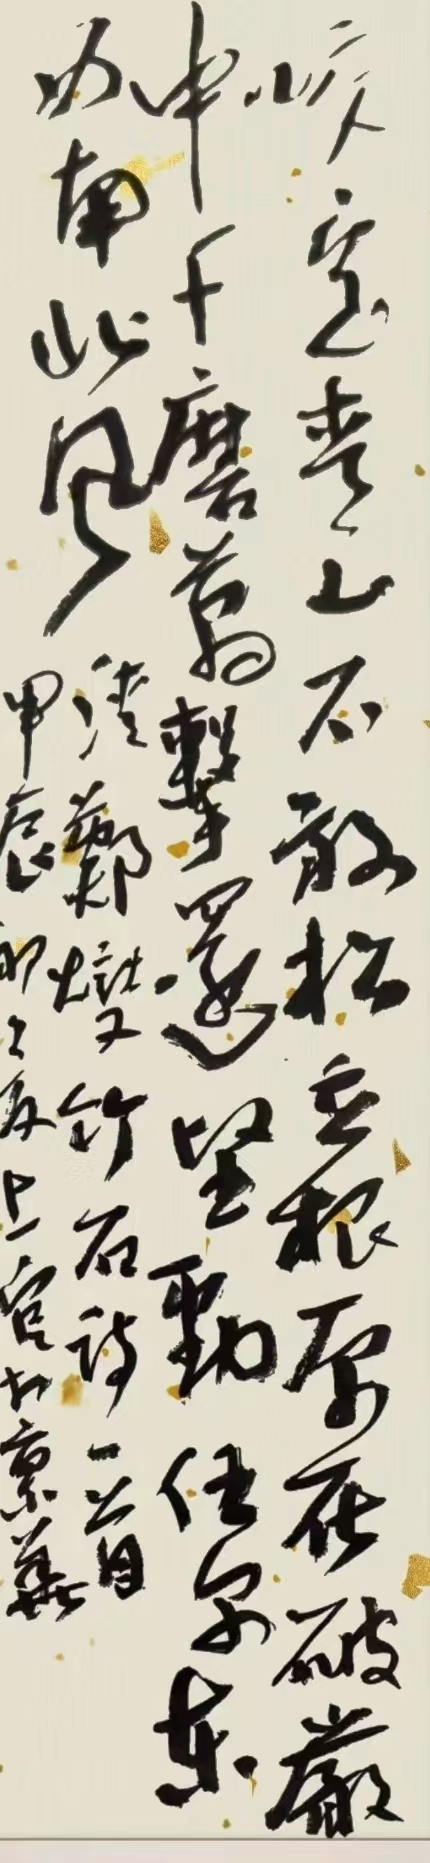 咬定青山不放松立根原在破巖
中千磨萬擊還堅勁任尔東
西南北風
清鄭燮竹石詩一首
甲辰 上官 京華